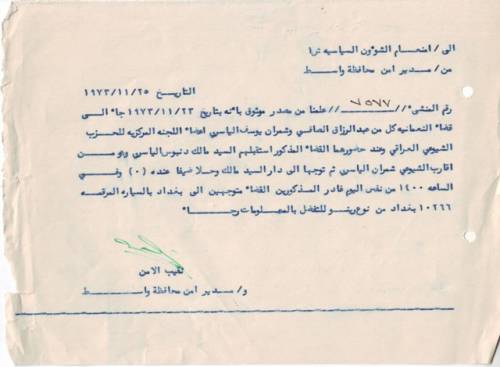 الى / امنعام الشؤون السياسيه ش١
من / مدير امن محافظة واسط
التاريخ ١٩٧٣/١١/٢٥
رقم المنشىء // ٧٥٧٧ // علمنا من مصدر موثوق بانه بتاريخ ١٩٧٣/١١/٢٣ جاء الى
قضاء النعمانيه كل من عبد الرزاق الصافي وشعران يوسف الياسري اعضاء اللجنه المركزيه للحزب
الشيوعي العراقي وعند حضورهما القضاء المذكور استقبلهم السيد مالك دنبوس الياسري وهو من
اقارب الشيوعي شعران الياسري ثم توجها الى دار السيد مالك وحلا ضيفا عنده (٠) وفي
الساعه ١٤٠٠ من نفس اليوم غادر المذكورين القضاء متوجهين الى بغداد بالسياره المرقمه
١٠٢٦٦ بغداد من نوع رينو للتفضل بالمعلومات رجاء
نقيب الامن
و/ مدير امن محافظة واسط